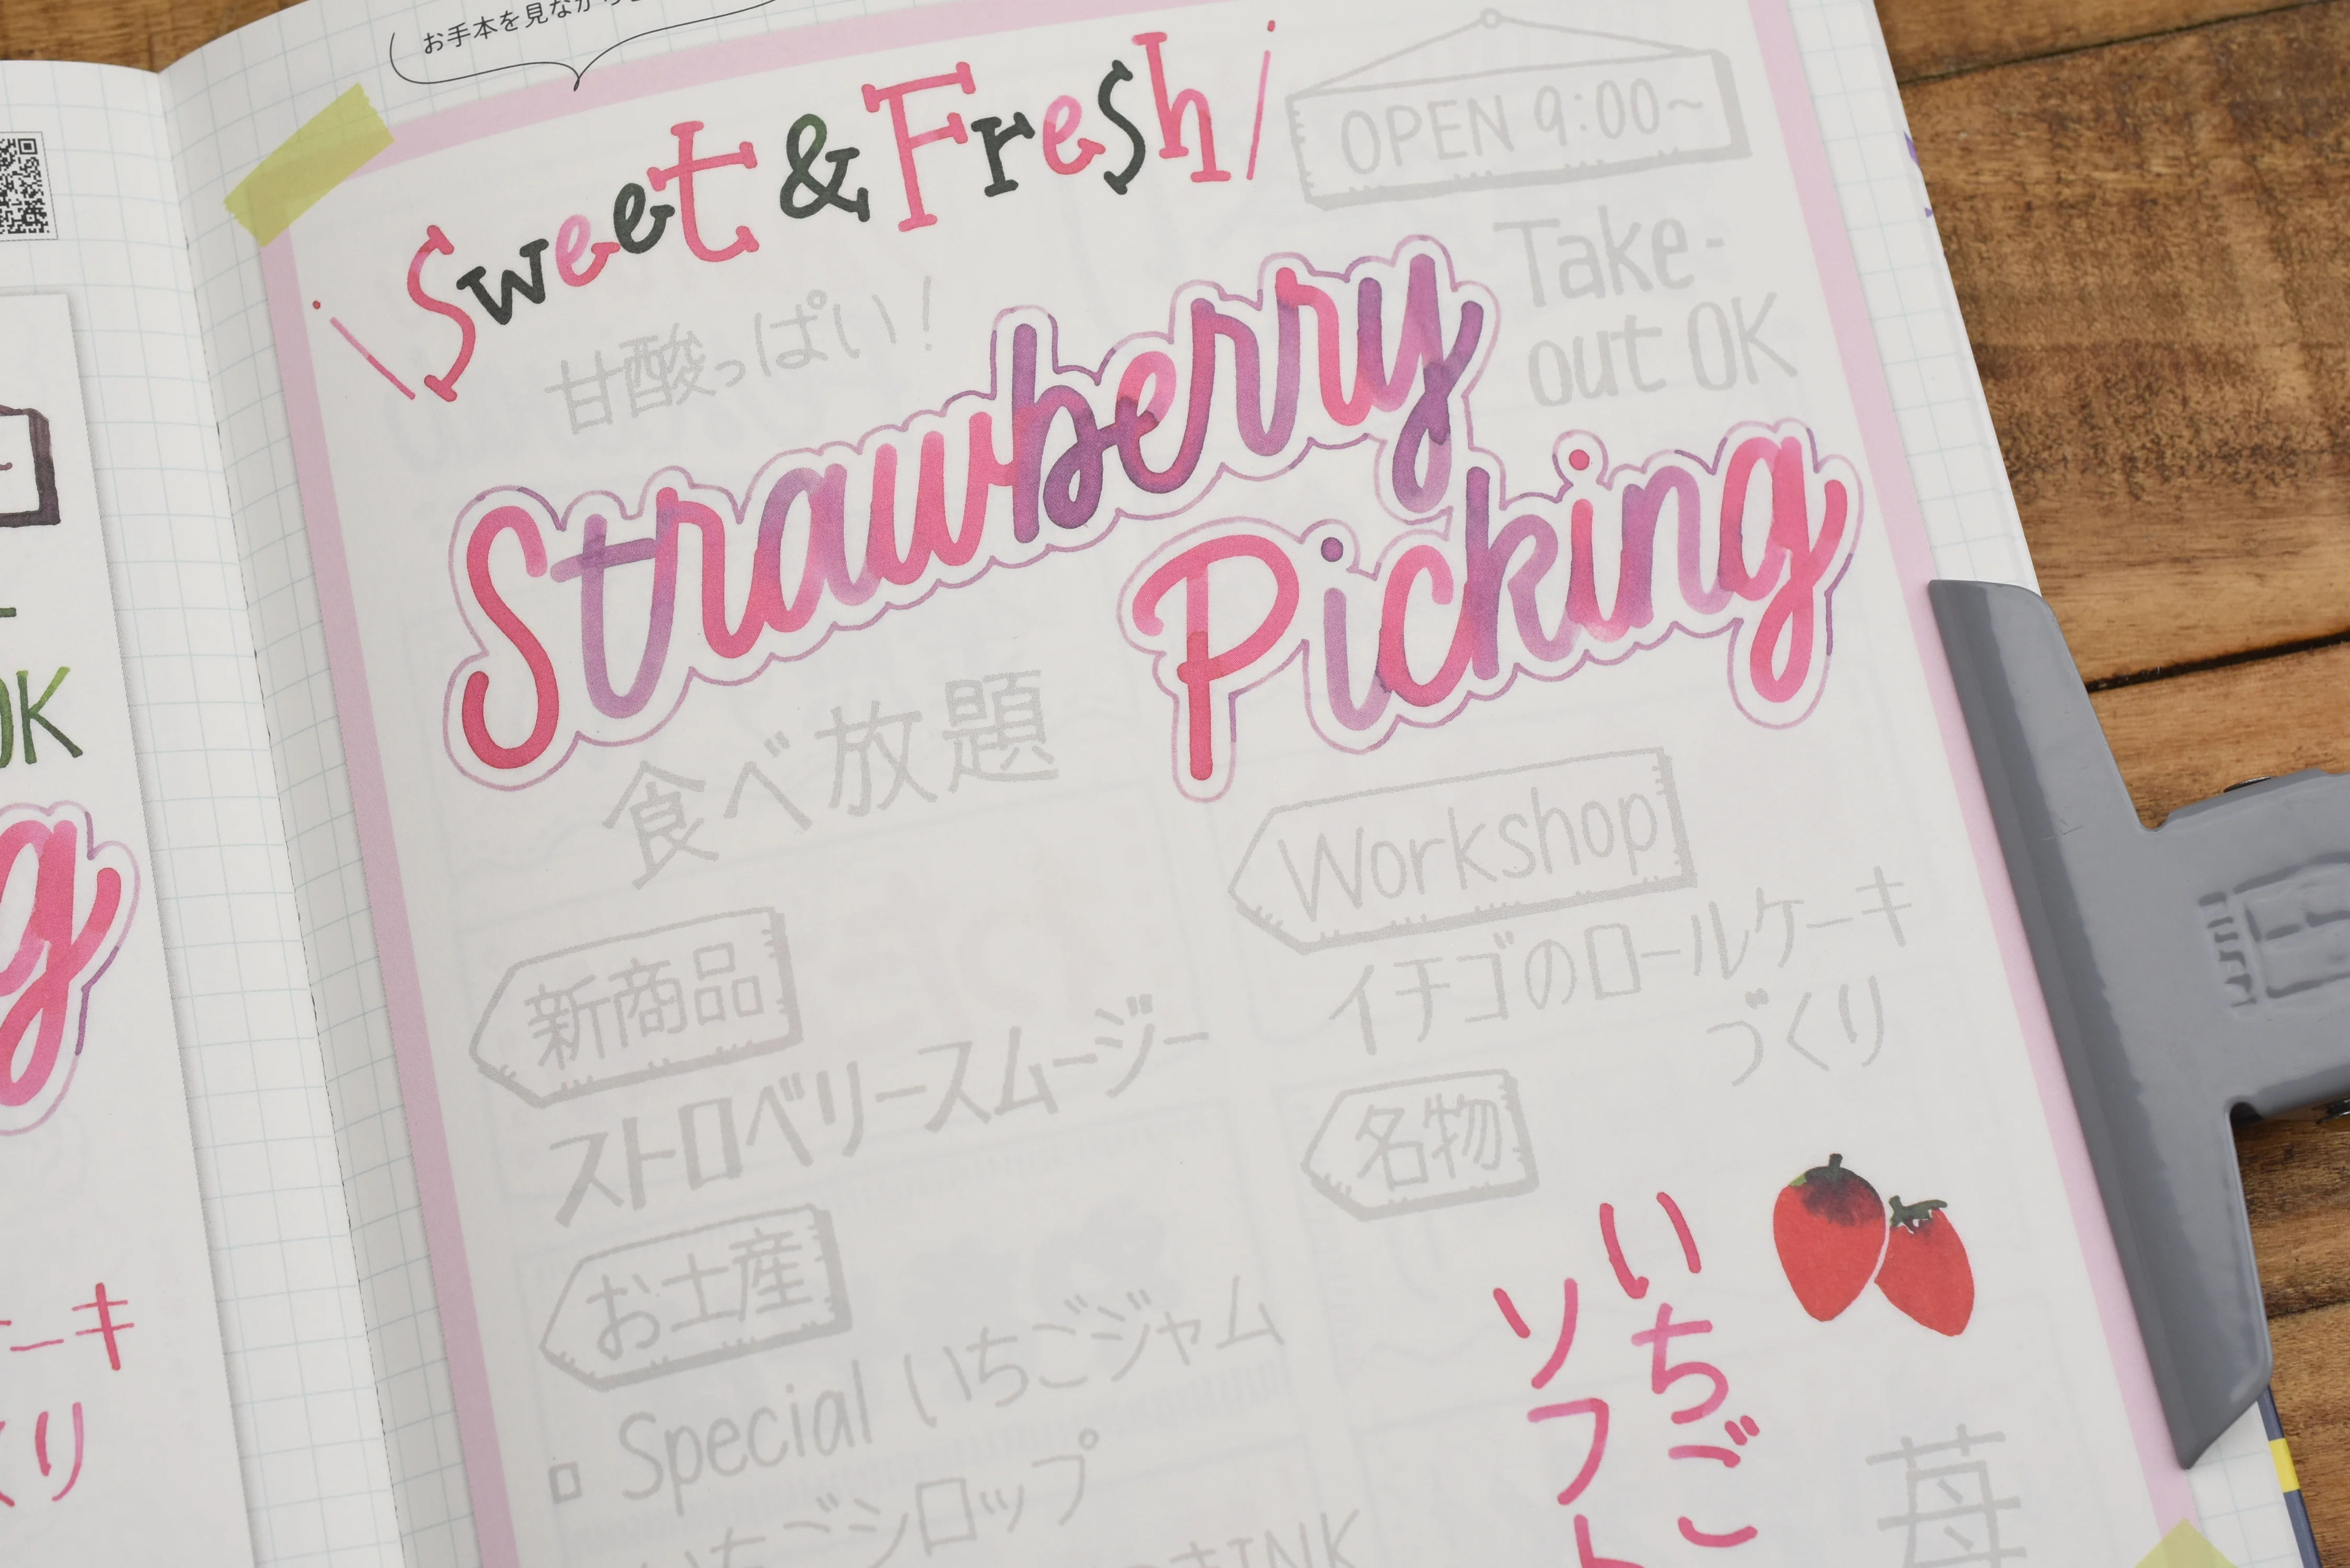 お手本を見ながら
Sweet & Fresh
OPEN 9:00~
甘酸っぱい!
Take-
out OK
Strawberry
Picking
食べ放題
Workshop
イチゴのロールケーキ
づくり
新商品
ストロベリースムージー
名物
お土産
Special いちごジャム
いちごシロップ
いちご
ソフト
苺
OK
g
ーキ
くり